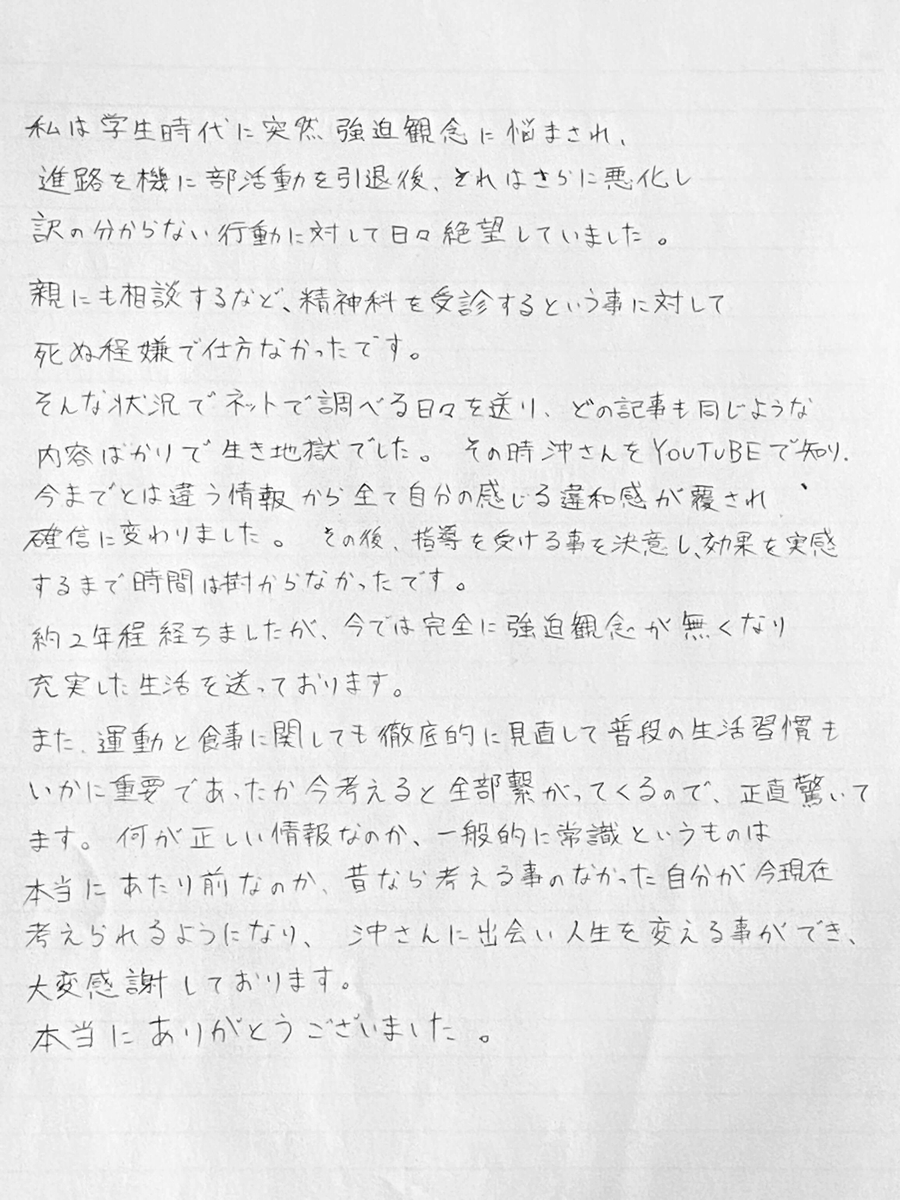 私は学生時代に突然強迫観念に悩まされ、
進路を機に部活動を引退後、それはさらに悪化し
訳の分からない行動に対して日々絶望していました。
親にも相談するなど、精神科を受診するという事に対して
死ぬ程嫌で仕方なかったです。
そんな状況でネットで調べる日々を送り、どの記事も同じような
内容ばかりで生き地獄でした。その時沖さんをYOUTUBEで知り、
今までとは違う情報から全て自分の感じる違和感が覆され、
確信に変わりました。その後、指導を受ける事を決意し、効果を実感
するまで時間は掛からなかったです。
約2年程経ちましたが、今では完全に強迫観念が無くなり
充実した生活を送っております。
また、運動と食事に関しても徹底的に見直して普段の生活習慣も
いかに重要であったか今考えると全部繋がってくるので、正直驚いて
ます。何が正しい情報なのか、一般的に常識というものは
本当にあたり前なのか、昔なら考える事のなかった自分が今現在
考えられるようになり、沖さんに出会い人生を変える事ができ、
大変感謝しております。
本当にありがとうございました。